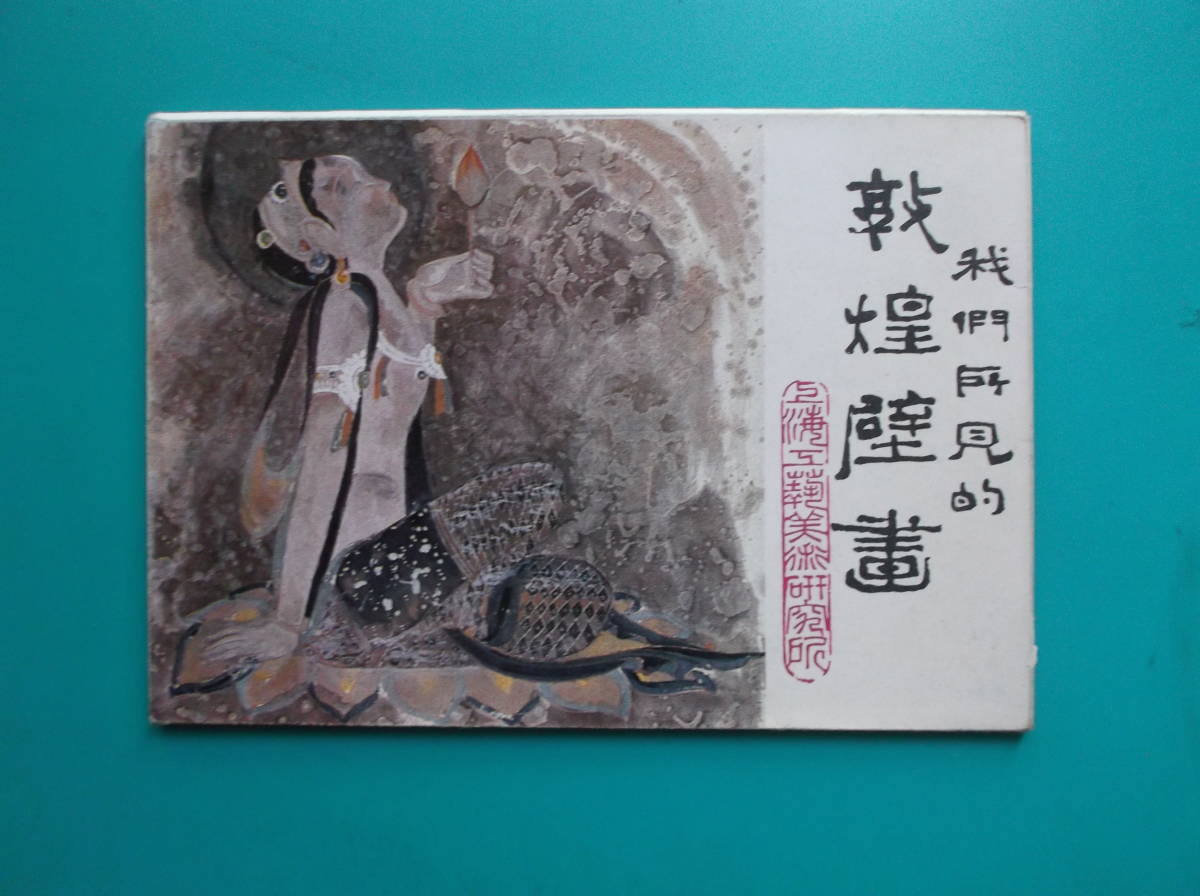 我們所見的
敦煌壁畫
上海工藝美術研究所